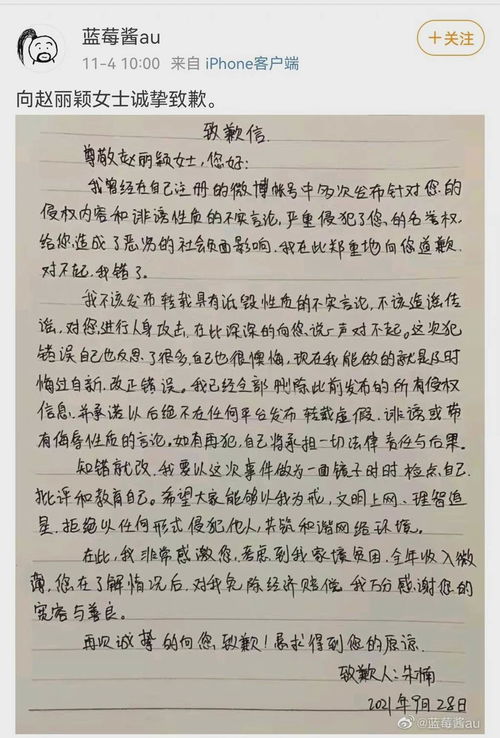 蓝莓酱au
＋关注
11-4 10:00 来自 iPhone客户端
向赵丽颖女士诚挚致歉。
致歉信
尊敬赵丽颖女士，您好：
我曾经在自己注册的微博帐号中多次发布针对您的
侵权内容和诽谤性质的不实言论，严重侵犯了您的名誉权
给您造成了恶劣的社会负面影响。我在此郑重地向您道歉，
对不起，我错了。
我不该发布转载具有诋毁性质的不实言论，不该造谣传
谣，对您进行人身攻击，在此深深的向您说一声对不起。这次犯
错误自己也反思了很多，自己也很懊悔，现在我能做的就是及时
悔过自新，改正错误。我已经全部删除此前发布的所有侵权
信息，并承诺以后绝不在任何平台发布转载虚假、诽谤或带
有侮辱性质的言论。如有再犯，自己将承担一切法律责任与后果。
知错就改，我要以这次事件做为一面镜子时时检点自己
批评和教育自己。希望大家能够以我为戒，文明上网、理智追
星，拒绝以任何形式侵犯他人，共筑和谐网络环境。
在此，我非常感激您，考虑到我家境贫困，全年收入微
薄，您在了解情况后，对我免除经济赔偿，我万分感谢您的
宽容与善良。
再次诚挚的向您致歉！恳求得到您的原谅。
致歉人：朱楠
2021年9月28日
@蓝莓酱au